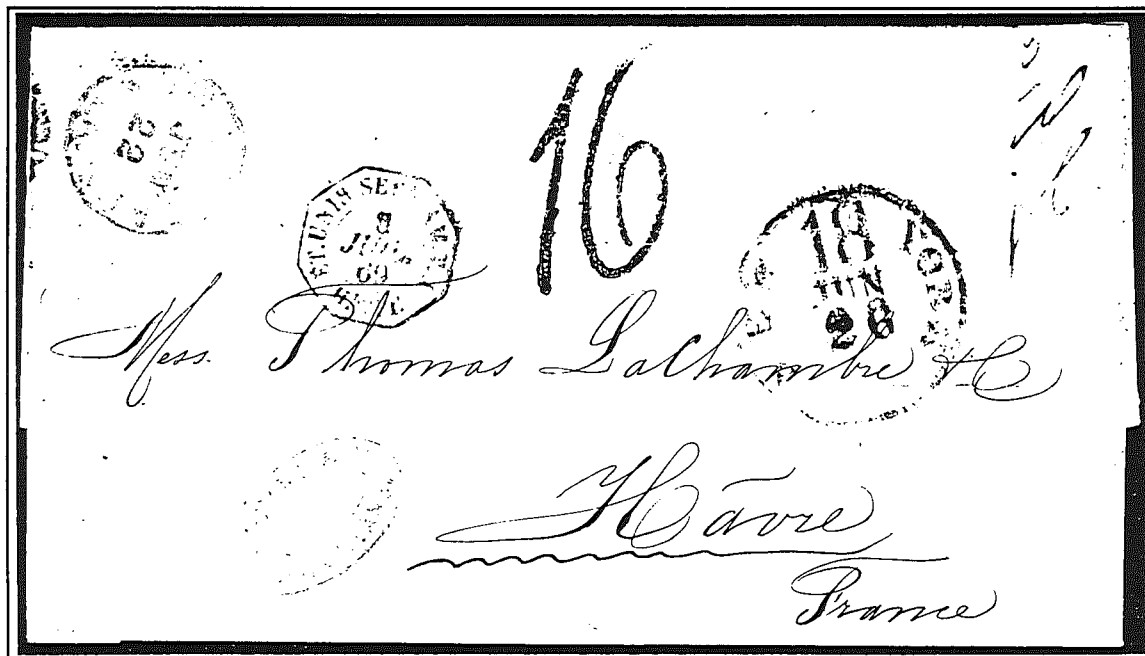 16
22
ET. UNIS SER
8
JUIL
69
18
JUN
26
YORK
Mess. Thomas LaChambre & C
Hâvre
France